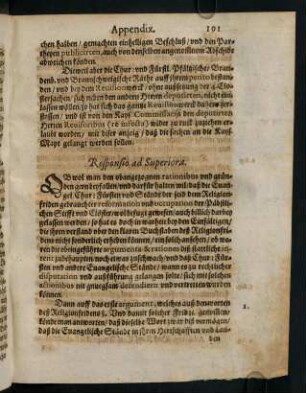 Appendix. 191
chen halben / gemachten einhelligen Beschluß / und den Par-
theyen publicirten, auch von denselben angenommenen Abschiede
abweichen können.
Dieweil aber die Chur: und Fürstl. Pfältzischer / Branden-
denb. und Braunschweigische Räthe auff ihrem petito bestan-
den / und bey dem Restitution werck / ohne außsetzung der 4. Clö-
ster sachen / sich neben den andern Herrn deputirten, nicht ein-
lassen wöllen: so hat sich das gantze werck daran
stossen / und ist von den Kays. Commissarien den deputirten
Herrn (re infecta) wider zu ruck zuziehen er-
laubt worden / mit diser anzeig / daß die sachen an die Kays.
Mayt. gelangt werden sollen.
Responsio ad Superiora.
OB wol man den obangezogenen rationibus und grün-
den gern beyfallen / und darfür halten will / daß die Euan-
gel. Chur: Fürsten und Stände der seid dem Religion-
friden gebrauchter reformation und occupation der Päbsti-
schen Stifft und Clöster / wol befügt gewesen / auch billich darbey
gelassen werden: so hat es doch in warheit bey den Einfältigen /
die ihren verstand über den klaren Buchstaben deß Religionfri-
dens nicht sonderlich erstrecken können / ein solch ansehen / ob wä-
ren die obeingeführte argumenta
zubehaupten / noch etwas zu schwach / und daß Chur: Für-
sten und andere Euangelische Stände / wann es zu rechtlicher
disputation und außführung gelangen solte / sich mit solchen
rationibus nit gnugsam defendiren und vertretten würden
können.
Dann auff das erste argument, welches auß den worten
deß Religionfridens §. Und damit solcher Frid ꝛc. genommen /
könde man antworten / daß dieselbe Wort zwar diß vermögen /
daß die Euangelische Stände in ihren Herrschafften und Lan-
2.
den